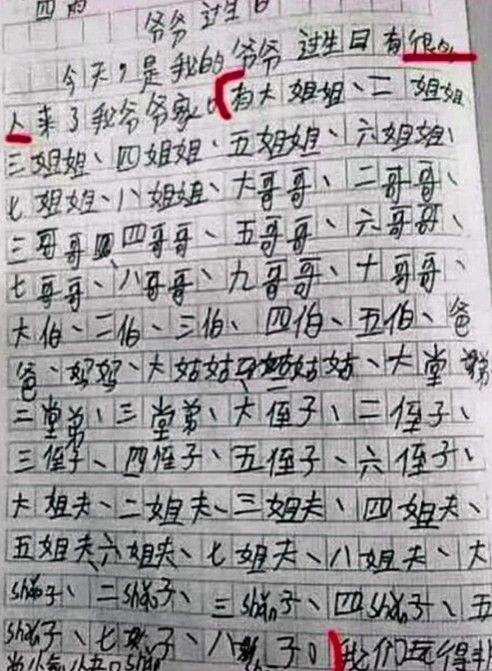 四(
爷爷过生日
今天，是我的爷爷过生日有很多
人来了我爷爷家。有大姐姐、二姐姐
三姐姐、四姐姐、五姐姐、六姐姐、
七姐姐、八姐姐、大哥哥、二哥哥、
三哥哥、四哥哥、五哥哥、六哥哥、
七哥哥、八哥哥、九哥哥、十哥哥、
大伯、二伯、三伯、四伯、五伯、爸
爸、妈妈、大姑姑、姑姑、大堂弟
二堂弟、三堂弟、大侄子、二侄子、
三侄子、四侄子、五侄子、六侄子、
大姐夫、二姐夫、三姐夫、四姐夫、
五姐夫、六姐夫、七姐夫、八姐夫、大
shǎo子、二shǎo子、三shǎo子、四shǎo子、五
shǎo子、七子、八子。我们玩得非